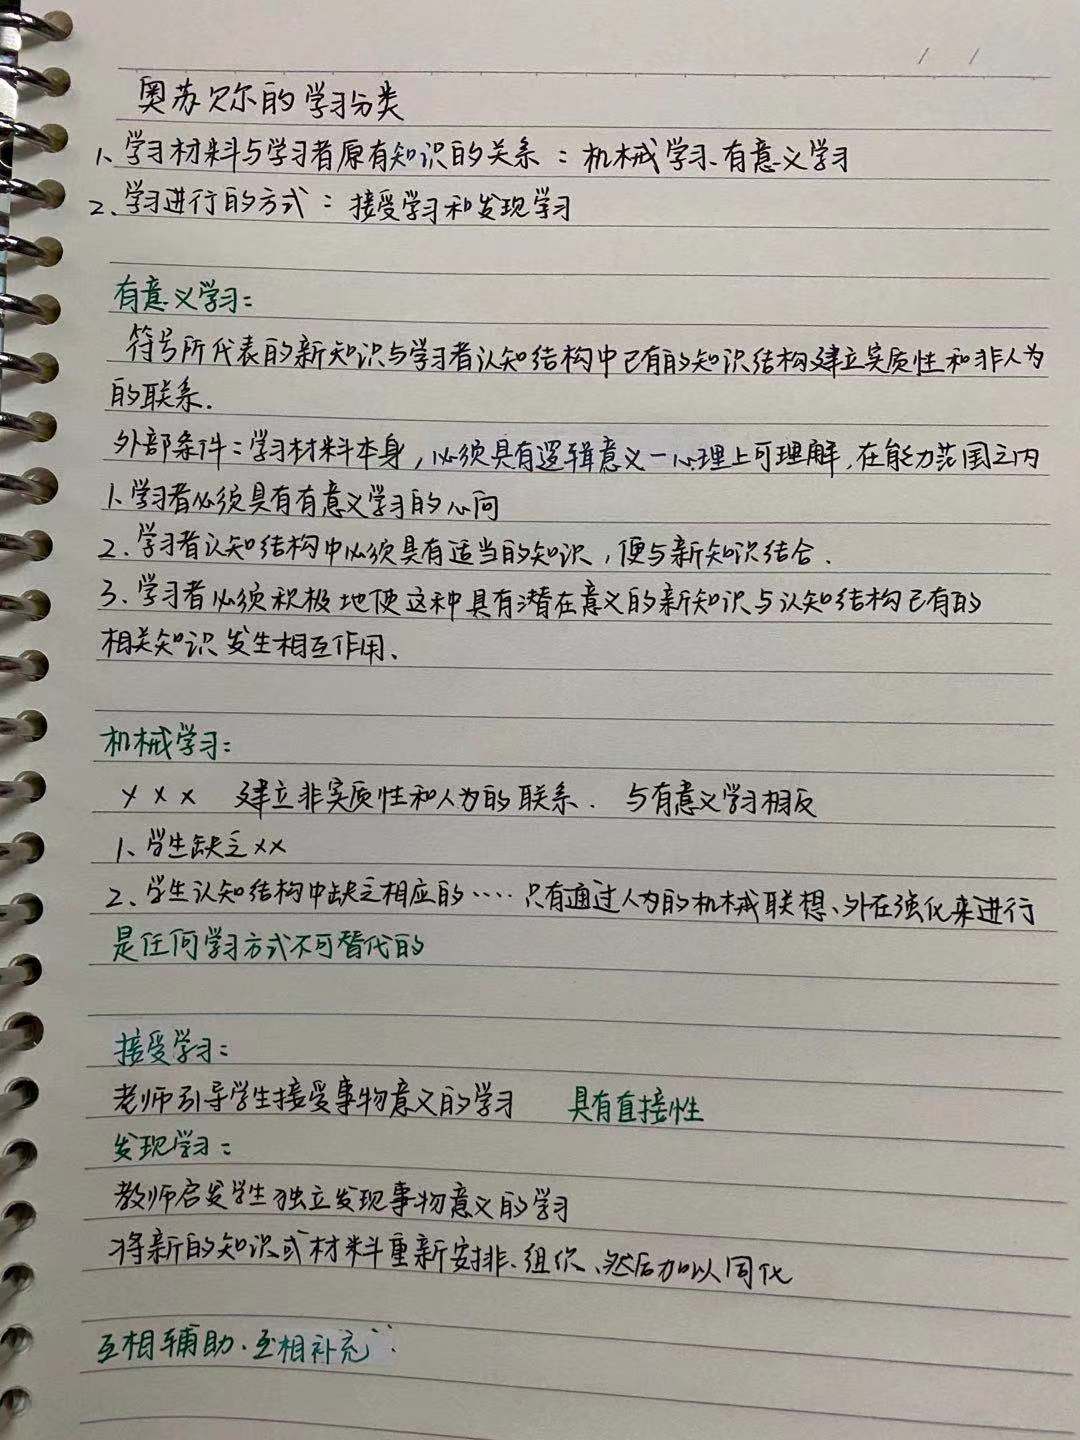 奥苏贝尔的学习分类
1、学习材料与学习者原有知识的关系：机械学习、有意义学习
2、学习进行的方式：接受学习和发现学习
有意义学习：
符号所代表的新知识与学习者认知结构中已有的知识结构建立实质性和非人为
的联系.
外部条件：学习材料本身，必须具有逻辑意义一心理上可理解，在能力范围之内
1、学习者必须具有有意义学习的心向
2、学习者认知结构中必须具有适当的知识，便与新知识结合.
3、学习者必须积极地使这种具有潜在意义的新知识与认知结构已有的
相关知识发生相互作用、
机械学习：
x x x 建立非实质性和人为的联系. 与有意义学习相反
1、学生缺乏xx
2、学生认知结构中缺乏相应的……只有通过人为的机械联想、外在强化来进行
是任何学习方式不可替代的
接受学习：
老师引导学生接受事物意义的学习 具有直接性
发现学习：
教师启发学生独立发现事物意义的学习
将新的知识或材料重新安排、组织、然后加以同化
互相辅助.互相补充